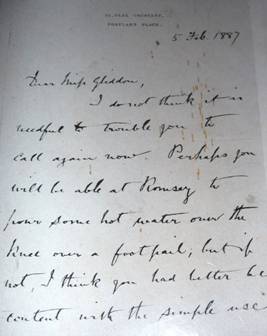 PARK CRESCENT,
PORTLAND PLACE.
5 Feb 1887
Dear Miss Gliddon,
I do not think it is
needful to trouble you to
call again now. Perhaps you
will be able at Romsey to
pour some hot water over the
knee over a footpail; but if
not, I think you had better be
content with the simple use